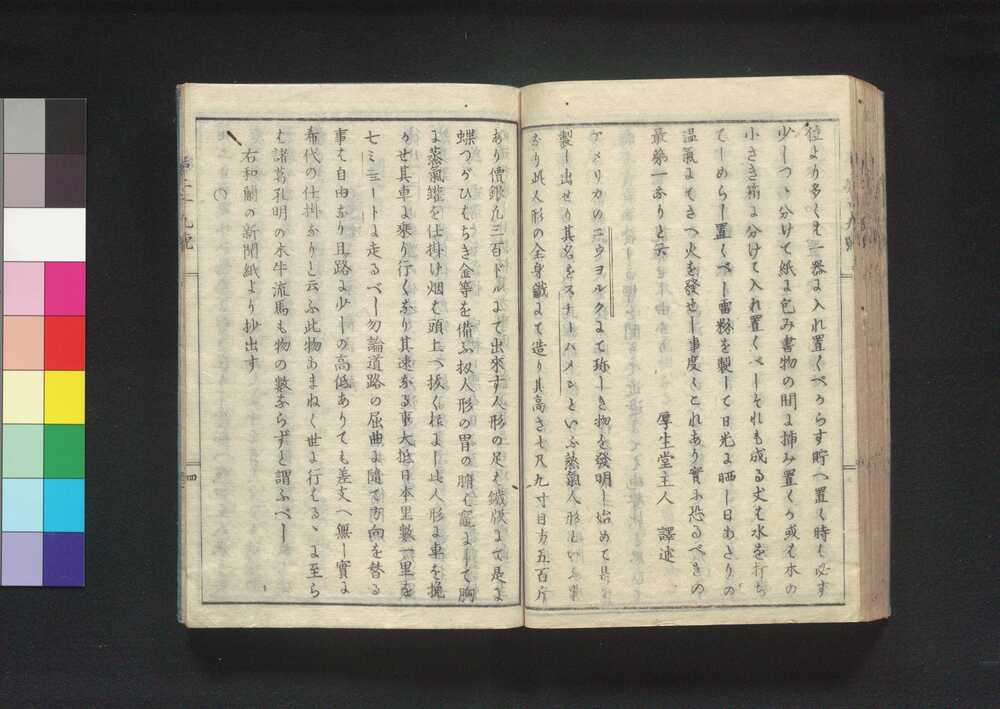 位より多くを一器に入れ置くべからす貯へ置く時も必す
少しつゝ分けて紙に包み書物の間に挿み置くか或は木の
小さき箱に分けて入れ置くべしそれも成る丈は水を打ち
てしめらし置くべし雷粉を製して日光に晒し日あたりの
温氣にてさへ火を發せし事度々これあり實に恐るべきの
最第一なりと云
厚生堂主人 譯述
アメリカのニウヨルクにて珍しき物を發明し始めて是を
製し出せり其名をスチームメンといふ蒸氣人形といふ事
なり此人形の全身鐵にて造り其高さ七尺九寸目方五百斤
あり價銀凡三百ドルにて出來す人形の足も鐵版にて是に
蝶つがひはらき金等を備ふ扨人形の胃の腑を竈にして胸
に蒸氣鑵を仕掛け烟は頭上へ抜く様にし此人形に車を挽
かせ其車に乘り行くなり其速なる事大抵日本里數一里を
七ミニュートに走るべし勿論道路の屈曲に隨て方向を替る
事は自由なり且路に少しの高低ありても差支へ無し實に
希代の仕掛なりと云ふ此物あまねく世に行はるゝに至ら
は諸葛孔明の木牛流馬も物の數ならずと謂ふべし
右和蘭の新聞紙より抄出す
四